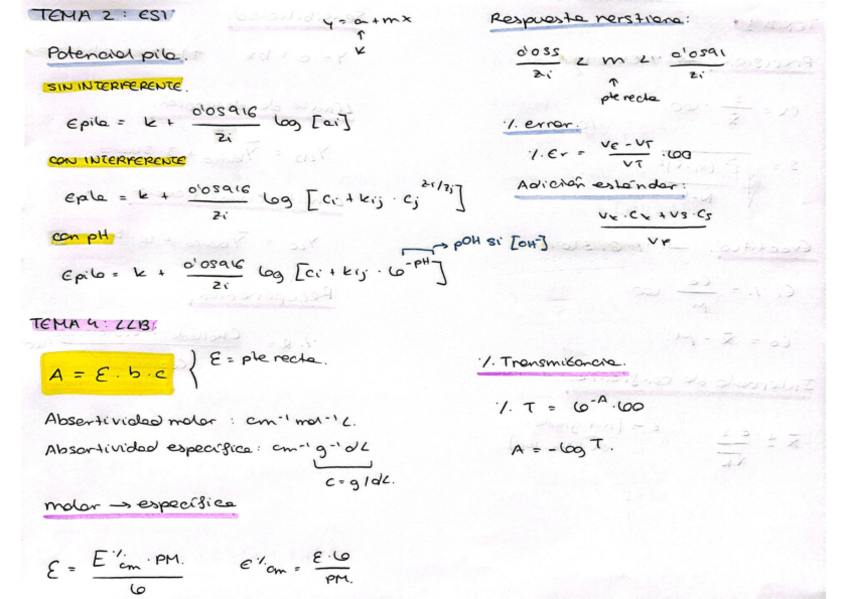 TEMA 2: ESI
y = a + mx
↑
K
Potencial pila.
SIN INTERFERENTE.
Epila = K + 0'05916/zi log [ai]
CON INTERFERENTE
Epila = K + 0'05916/zi log [Ci + Kij · Cj^zi/zj]
con pH
Epila = K + 0'05916/zi log [Ci + Kij · 10^-pH] → pOH si [OH⁻]
Respuesta nerstiana:
0'055/zi < m < 0'0591/zi
↑
pte recta
% error.
% Er = VE - VT/VT · 100
Adición estándar:
Vx · Cx + Vs · Cs/VF
TEMA 4: LLB.
A = Ɛ · b · c } Ɛ = pte recta.
Absortividad molar : cm⁻¹ mol⁻¹ L.
Absortividad específica: cm⁻¹ g⁻¹ dL
c = g/dL.
molar → específica
Ɛ = E%cm · PM./10
E%cm = Ɛ · 10/PM.
% Transmitancia.
% T = 10^-A · 100
A = -log T.